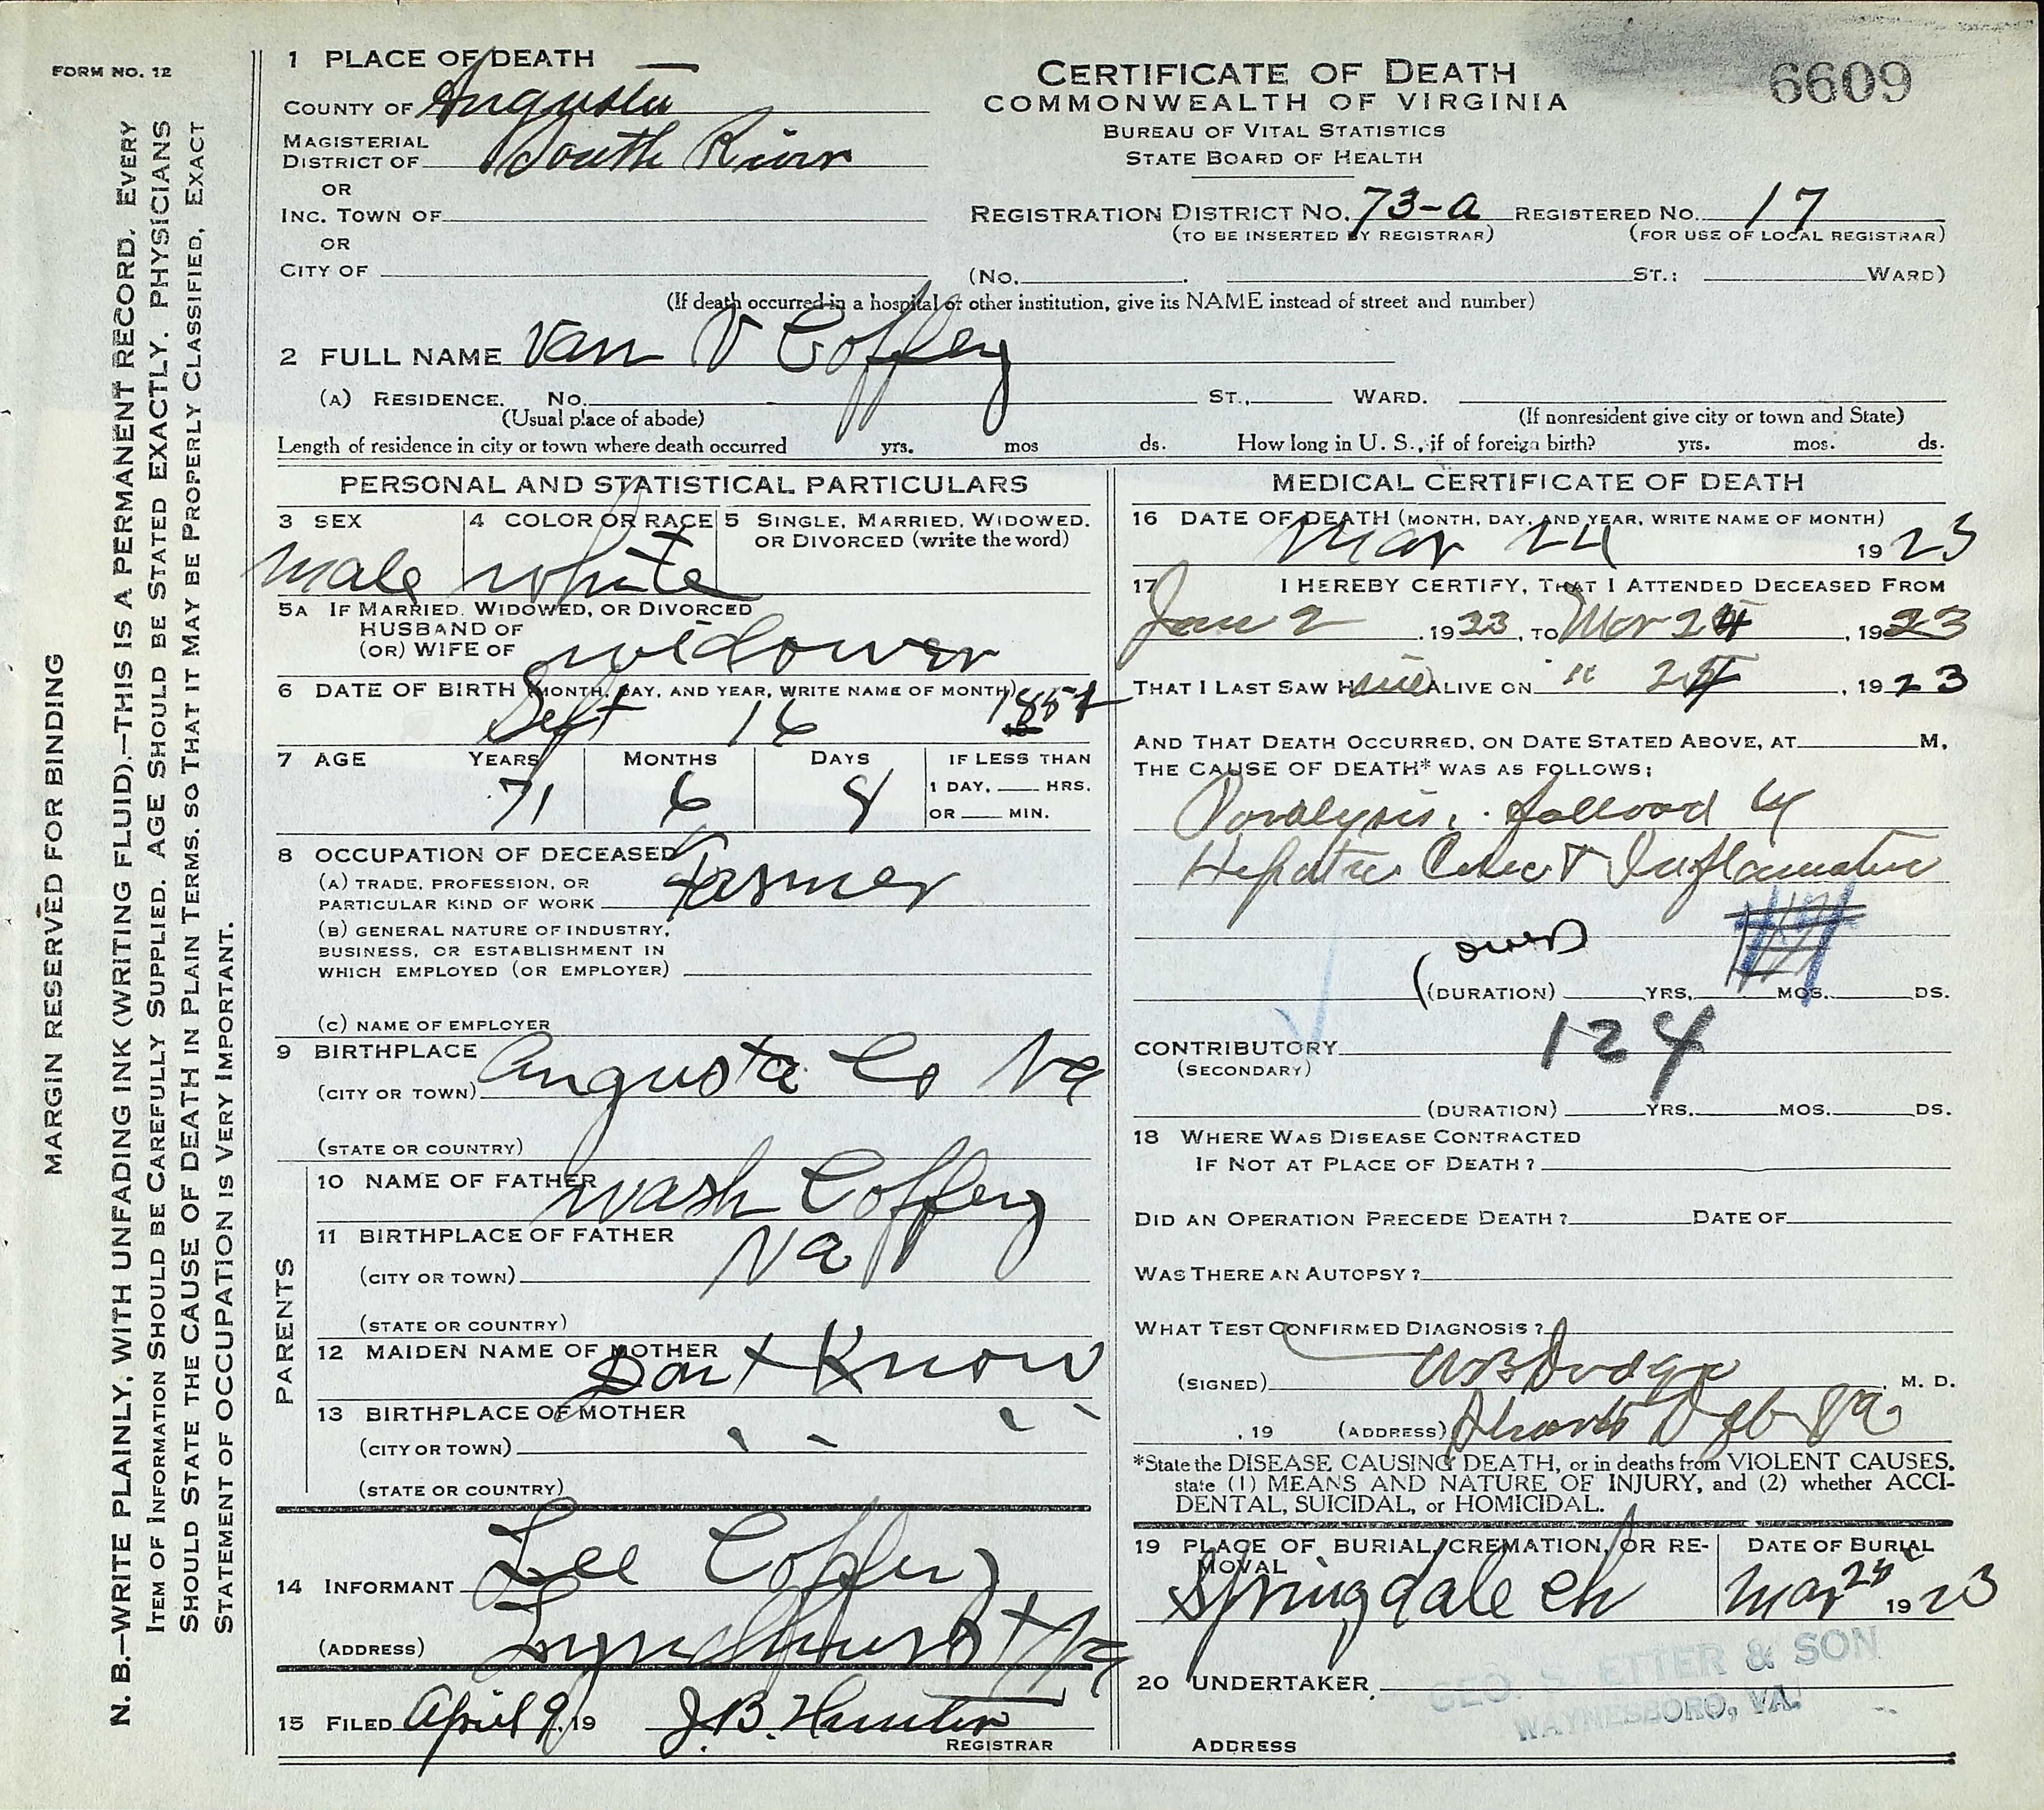 FORM NO. 12
MARGIN RESERVED FOR BINDING
N. B.—WRITE PLAINLY, WITH UNFADING INK (WRITING FLUID).—THIS IS A PERMANENT RECORD. EVERY
ITEM OF INFORMATION SHOULD BE CAREFULLY SUPPLIED. AGE SHOULD BE STATED EXACTLY. PHYSICIANS
SHOULD STATE THE CAUSE OF DEATH IN PLAIN TERMS, SO THAT IT MAY BE PROPERLY CLASSIFIED, EXACT
STATEMENT OF OCCUPATION IS VERY IMPORTANT.
1 PLACE OF DEATH
COUNTY OF Augusta
MAGISTERIAL
DISTRICT OF South River
OR
INC. TOWN OF
OR
CITY OF
CERTIFICATE OF DEATH
COMMONWEALTH OF VIRGINIA
BUREAU OF VITAL STATISTICS
STATE BOARD OF HEALTH
6609
REGISTRATION DISTRICT NO. 73-a REGISTERED NO. 17
(TO BE INSERTED BY REGISTRAR) (FOR USE OF LOCAL REGISTRAR)
(NO. ST.; WARD)
(If death occurred in a hospital or other institution, give its NAME instead of street and number)
2 FULL NAME Van V Coffey
(A) RESIDENCE. NO. ST., WARD.
(Usual place of abode) (If nonresident give city or town and State)
Length of residence in city or town where death occurred yrs. mos ds. How long in U. S., if of foreign birth? yrs. mos. ds.
PERSONAL AND STATISTICAL PARTICULARS
3 SEX 4 COLOR OR RACE 5 SINGLE, MARRIED, WIDOWED,
OR DIVORCED (write the word)
male white
5A IF MARRIED, WIDOWED, OR DIVORCED
HUSBAND OF
(OR) WIFE OF widower
6 DATE OF BIRTH (MONTH, DAY, AND YEAR, WRITE NAME OF MONTH)
Sept 16 1851
7 AGE YEARS MONTHS DAYS IF LESS THAN
1 DAY, HRS.
OR MIN.
71 6 8
8 OCCUPATION OF DECEASED
(A) TRADE, PROFESSION, OR
PARTICULAR KIND OF WORK Farmer
(B) GENERAL NATURE OF INDUSTRY,
BUSINESS, OR ESTABLISHMENT IN
WHICH EMPLOYED (OR EMPLOYER)
(C) NAME OF EMPLOYER
9 BIRTHPLACE
(CITY OR TOWN) Augusta Co Va
(STATE OR COUNTRY)
PARENTS
10 NAME OF FATHER Wash Coffey
11 BIRTHPLACE OF FATHER
(CITY OR TOWN) Va
(STATE OR COUNTRY)
12 MAIDEN NAME OF MOTHER Dont Know
13 BIRTHPLACE OF MOTHER
(CITY OR TOWN)
(STATE OR COUNTRY)
14 INFORMANT Lee Coffey
(ADDRESS) Lyndhurst Va
15 FILED April 9, 19 J. B. Hunter
REGISTRAR
MEDICAL CERTIFICATE OF DEATH
16 DATE OF DEATH (MONTH, DAY, AND YEAR, WRITE NAME OF MONTH)
Mar 24 1923
17 I HEREBY CERTIFY, THAT I ATTENDED DECEASED FROM
Jan 2, 1923, TO Mar 24, 1923
THAT I LAST SAW H ALIVE ON " , 1923
AND THAT DEATH OCCURRED, ON DATE STATED ABOVE, AT M.
THE CAUSE OF DEATH* WAS AS FOLLOWS:
Paralysis, followed by
Hepatic Colic & Inflamation
(over)
(DURATION) YRS. MOS. DS.
CONTRIBUTORY 124
(SECONDARY)
(DURATION) YRS. MOS. DS.
18 WHERE WAS DISEASE CONTRACTED
IF NOT AT PLACE OF DEATH?
DID AN OPERATION PRECEDE DEATH? DATE OF
WAS THERE AN AUTOPSY?
WHAT TEST CONFIRMED DIAGNOSIS?
(SIGNED) WB Dodge M. D.
, 19 (ADDRESS) Stuarts Dft Va
*State the DISEASE CAUSING DEATH, or in deaths from VIOLENT CAUSES,
state (1) MEANS AND NATURE OF INJURY, and (2) whether ACCI-
DENTAL, SUICIDAL, or HOMICIDAL.
19 PLACE OF BURIAL, CREMATION, OR RE-
MOVAL DATE OF BURIAL
Springdale ch Mar 25 1923
20 UNDERTAKER GEO. S. ETTER & SON
WAYNESBORO, VA.
ADDRESS